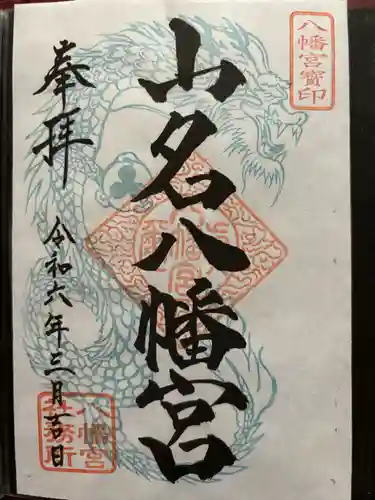 八幡宮寶印
山名八幡宮
奉拝
令和六年三月吉日
八幡宮
社務所